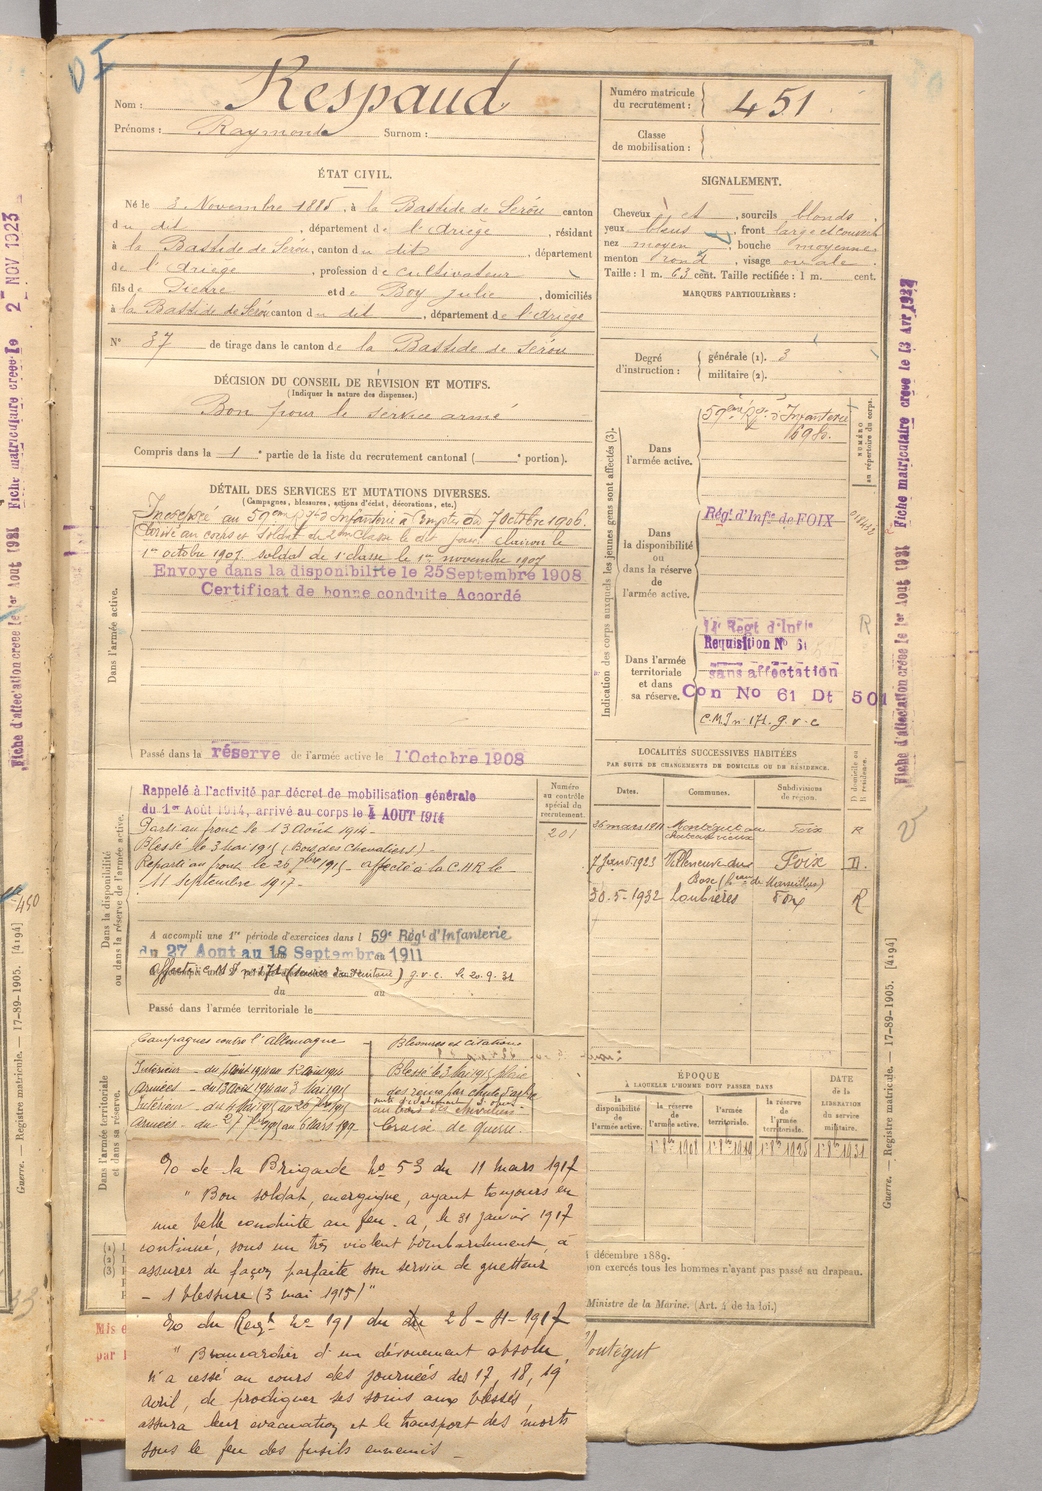 Nom : Respaud
Prénoms : Raymond Surnom :
Numéro matricule du recrutement : 451
Classe de mobilisation :
ÉTAT CIVIL.
Né le 3 Novembre 1885, à la Bastide de Sérou canton
du dit, département de l'Ariège, résidant
à la Bastide de Sérou, canton du dit, département
de l'Ariège, profession de cultivateur
fils de Pierre et de Boy Julie, domiciliés
à la Bastide de Sérou canton du dit, département de l'Ariège
N° 37 de tirage dans le canton de la Bastide de Sérou
SIGNALEMENT.
Cheveux et, sourcils blonds.
yeux bleus, front large et couvert
nez moyen, bouche moyenne
menton rond, visage ovale.
Taille : 1 m. 63 cent. Taille rectifiée : 1 m. cent.
MARQUES PARTICULIÈRES :
Degré d'instruction : générale (1). 3
militaire (2).
DÉCISION DU CONSEIL DE RÉVISION ET MOTIFS.
(Indiquer la nature des dispenses.)
Bon pour le service armé
Compris dans la 1e partie de la liste du recrutement cantonal (e portion).
DÉTAIL DES SERVICES ET MUTATIONS DIVERSES.
(Campagnes, blessures, actions d'éclat, décorations, etc.)
Dans l'armée active.
Incorporé au 59ème Rgt d'Infanterie à Compter du 7 octobre 1906.
Arrivé au corps et Soldat de 2ème Classe le dit jour. Clairon le
1er octobre 1907. soldat de 1e classe le 1er novembre 1907
Envoye dans la disponibilite le 25 Septembre 1908
Certificat de bonne conduite Accordé
Passé dans la réserve de l'armée active le 1 Octobre 1908
Indication des corps auxquels les jeunes gens sont affectés (3).
Dans l'armée active.
59ème Rgt d'Infanterie
NUMÉRO au répertoire du corps.
Dans la disponibilité ou dans la réserve de l'armée active.
Régt d'Infie de FOIX
Dans l'armée territoriale et dans sa réserve.
Regt d'Infie
Requisition No
sans affectation
Con No 61 Dt 501
C.M.I n° 171. g.v.c
R
LOCALITÉS SUCCESSIVES HABITÉES
PAR SUITE DE CHANGEMENTS DE DOMICILE OU DE RÉSIDENCE.
Dates. Communes. Subdivisions de région. D domicile ou R résidence.
26 mars 1911 Montégut Foix R
7 Janv 1923 Villeneuve du Bosc Foix D.
30.5-1932 Loubières Foix R
Dans la disponibilité ou dans la réserve de l'armée active.
Numéro au contrôle spécial du recrutement.
201
Rappelé à l'activité par décret de mobilisation générale
du 1er Août 1914, arrivé au corps le 4 AOUT 1914
Parti au front le 13 Août 1914 -
Blessé le 3 Mai 1915 (Bois des Chevaliers) -
Reparti au front le 26 7bre 1915 - affecté à la C.H.R le
11 septembre 1917 -
A accompli une 1re période d'exercices dans l 59e Régt d'Infanterie
du 27 Aout au 18 Septembre 1911
Affecté C.M.I n° 171 g.v.c. le 20.9.31
du au
Passé dans l'armée territoriale le
Dans l'armée territoriale et dans sa réserve.
Campagnes contre l'Allemagne
Blessures et Citations
Croix de guerre.
ÉPOQUE
À LAQUELLE L'HOMME DOIT PASSER DANS
la disponibilité de l'armée active.
la réserve de l'armée active.
l'armée territoriale.
la réserve de l'armée territoriale.
DATE de la LIBÉRATION du service militaire.
1er 8bre 1908 1er 8bre 1919 1er 8bre 1925 1er 8bre 1931
O/o de la Brigade N° 53 du 11 mars 1917
" Bon soldat, énergique, ayant toujours eu
une belle conduite au feu. A, le 31 janvier 1917
continué, sous un très violent bombardement, à
assurer de façon parfaite son service de guetteur
- 1 blessure (3 mai 1915) "
O/o du Regt N° 191 du 28-4-1917
" Brancardier d'un dévouement absolu,
n'a cessé au cours des journées des 17, 18, 19
avril, de prodiguer ses soins aux blessés,
assura leur évacuation et le transport des morts
sous le feu des fusils ennemis -
décembre 1889.
on exercés tous les hommes n'ayant pas passé au drapeau.
Ministre de la Marine. (Art. 4 de la loi.)
Montégut
Mis e
par l
Guerre. — Registre matricule. — 17-89-1905. [4194]
Guerre. — Registre matricule. — 17-89-1905. [4194]
450
2 NOV 1923
Fiche d'affectation créée le 1er Aout 1931 Fiche matriculaire créée le
Fiche d'affectation créée le 1er Aout 1931 Fiche matriculaire créée le 13 Avr